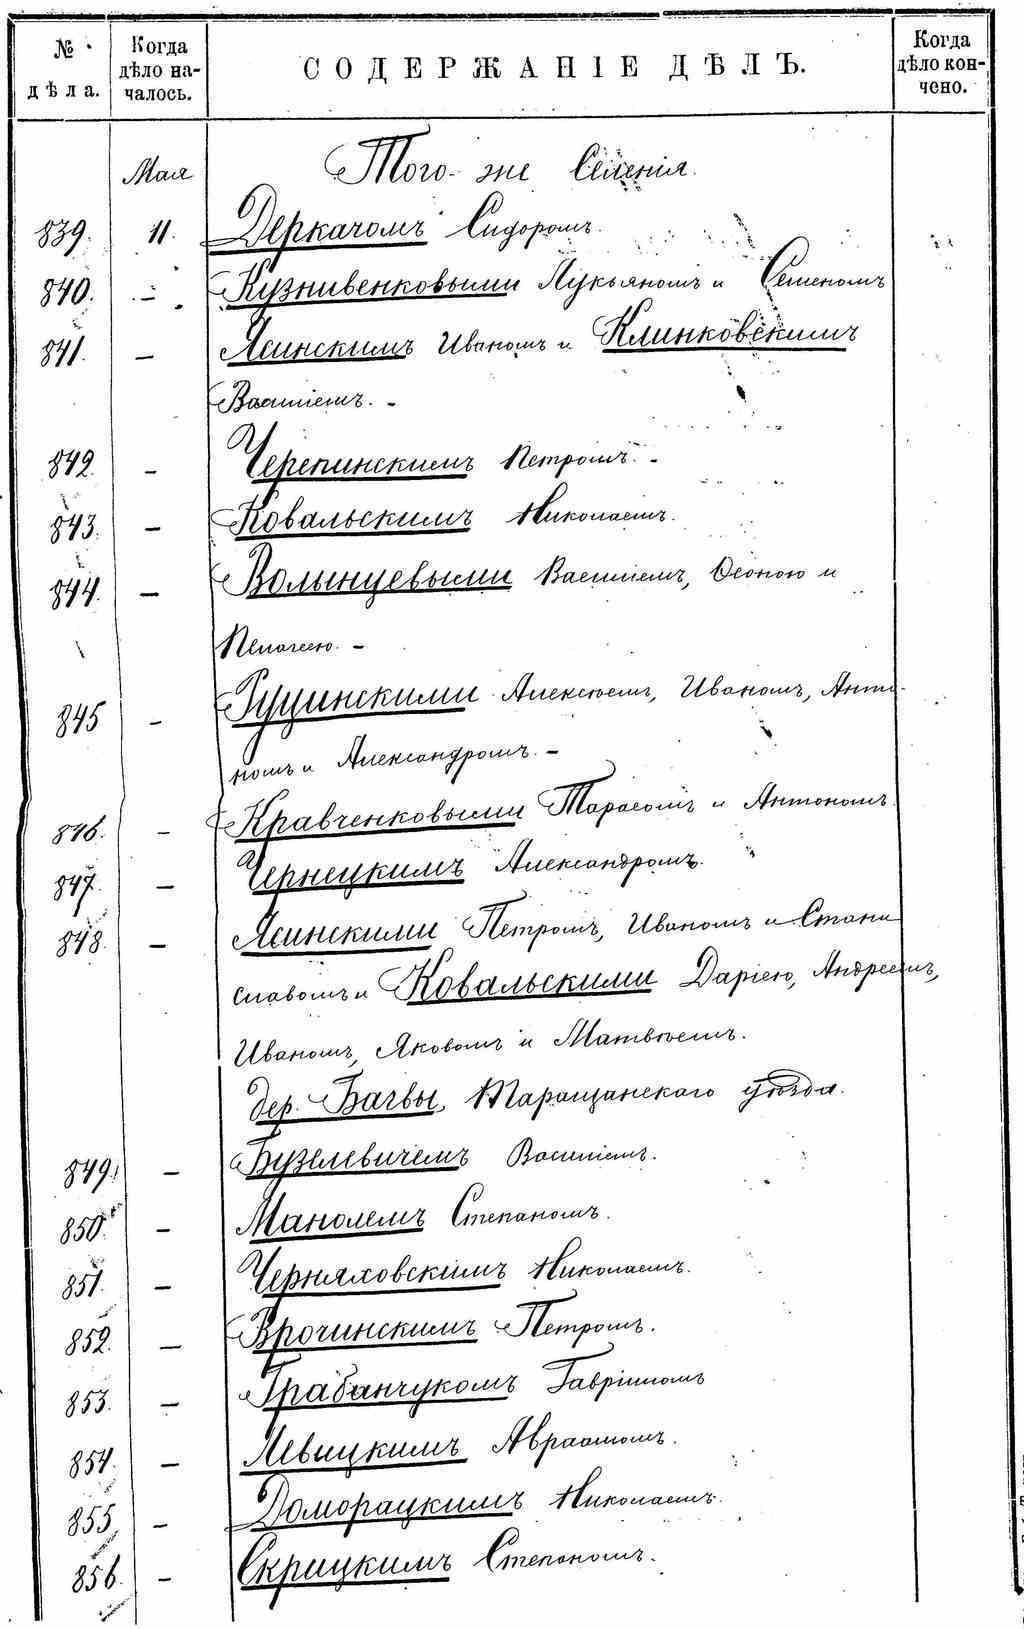 № дѣла. Когда дѣло началось. СОДЕРЖАНІЕ ДѢЛЪ. Когда дѣло кончено.
Мая Того-же Селенія.
839. 11. Деркачомъ Сидоромъ.
840. - Кузнивенковыми Лукьяномъ и Семеномъ
841. - Ясинскимъ Иваномъ и Клинковскимъ
Василіемъ. -
842. - Черепинскимъ Петромъ. -
843. - Ковальскимъ Николаемъ.
844. - Волынцевыми Василіемъ, Осипомъ и
845 - Алексѣемъ, Иваномъ, Анто-
номъ и Александромъ. -
846. - Кравченковыми Тарасомъ и Антономъ.
847. - Чернецкимъ Александромъ.
848. - Ясинскими Петромъ, Иваномъ и Стани
славомъ и Ковальскими Даріею, Андреемъ,
Иваномъ, Яковомъ и Матвѣемъ.
дер. Багвы, Таращанскаго уѣзда.
849. - Бузелевичемъ Василіемъ.
850. - Манолемъ Степаномъ.
851. - Черняховскимъ Николаемъ.
852. - Врочинскимъ Петромъ.
853. - Грабанчукомъ Гавріиломъ
854. - Левицкимъ Авраамомъ.
855. - Доморацкимъ Николаемъ.
856. - Скрицкимъ Степаномъ.